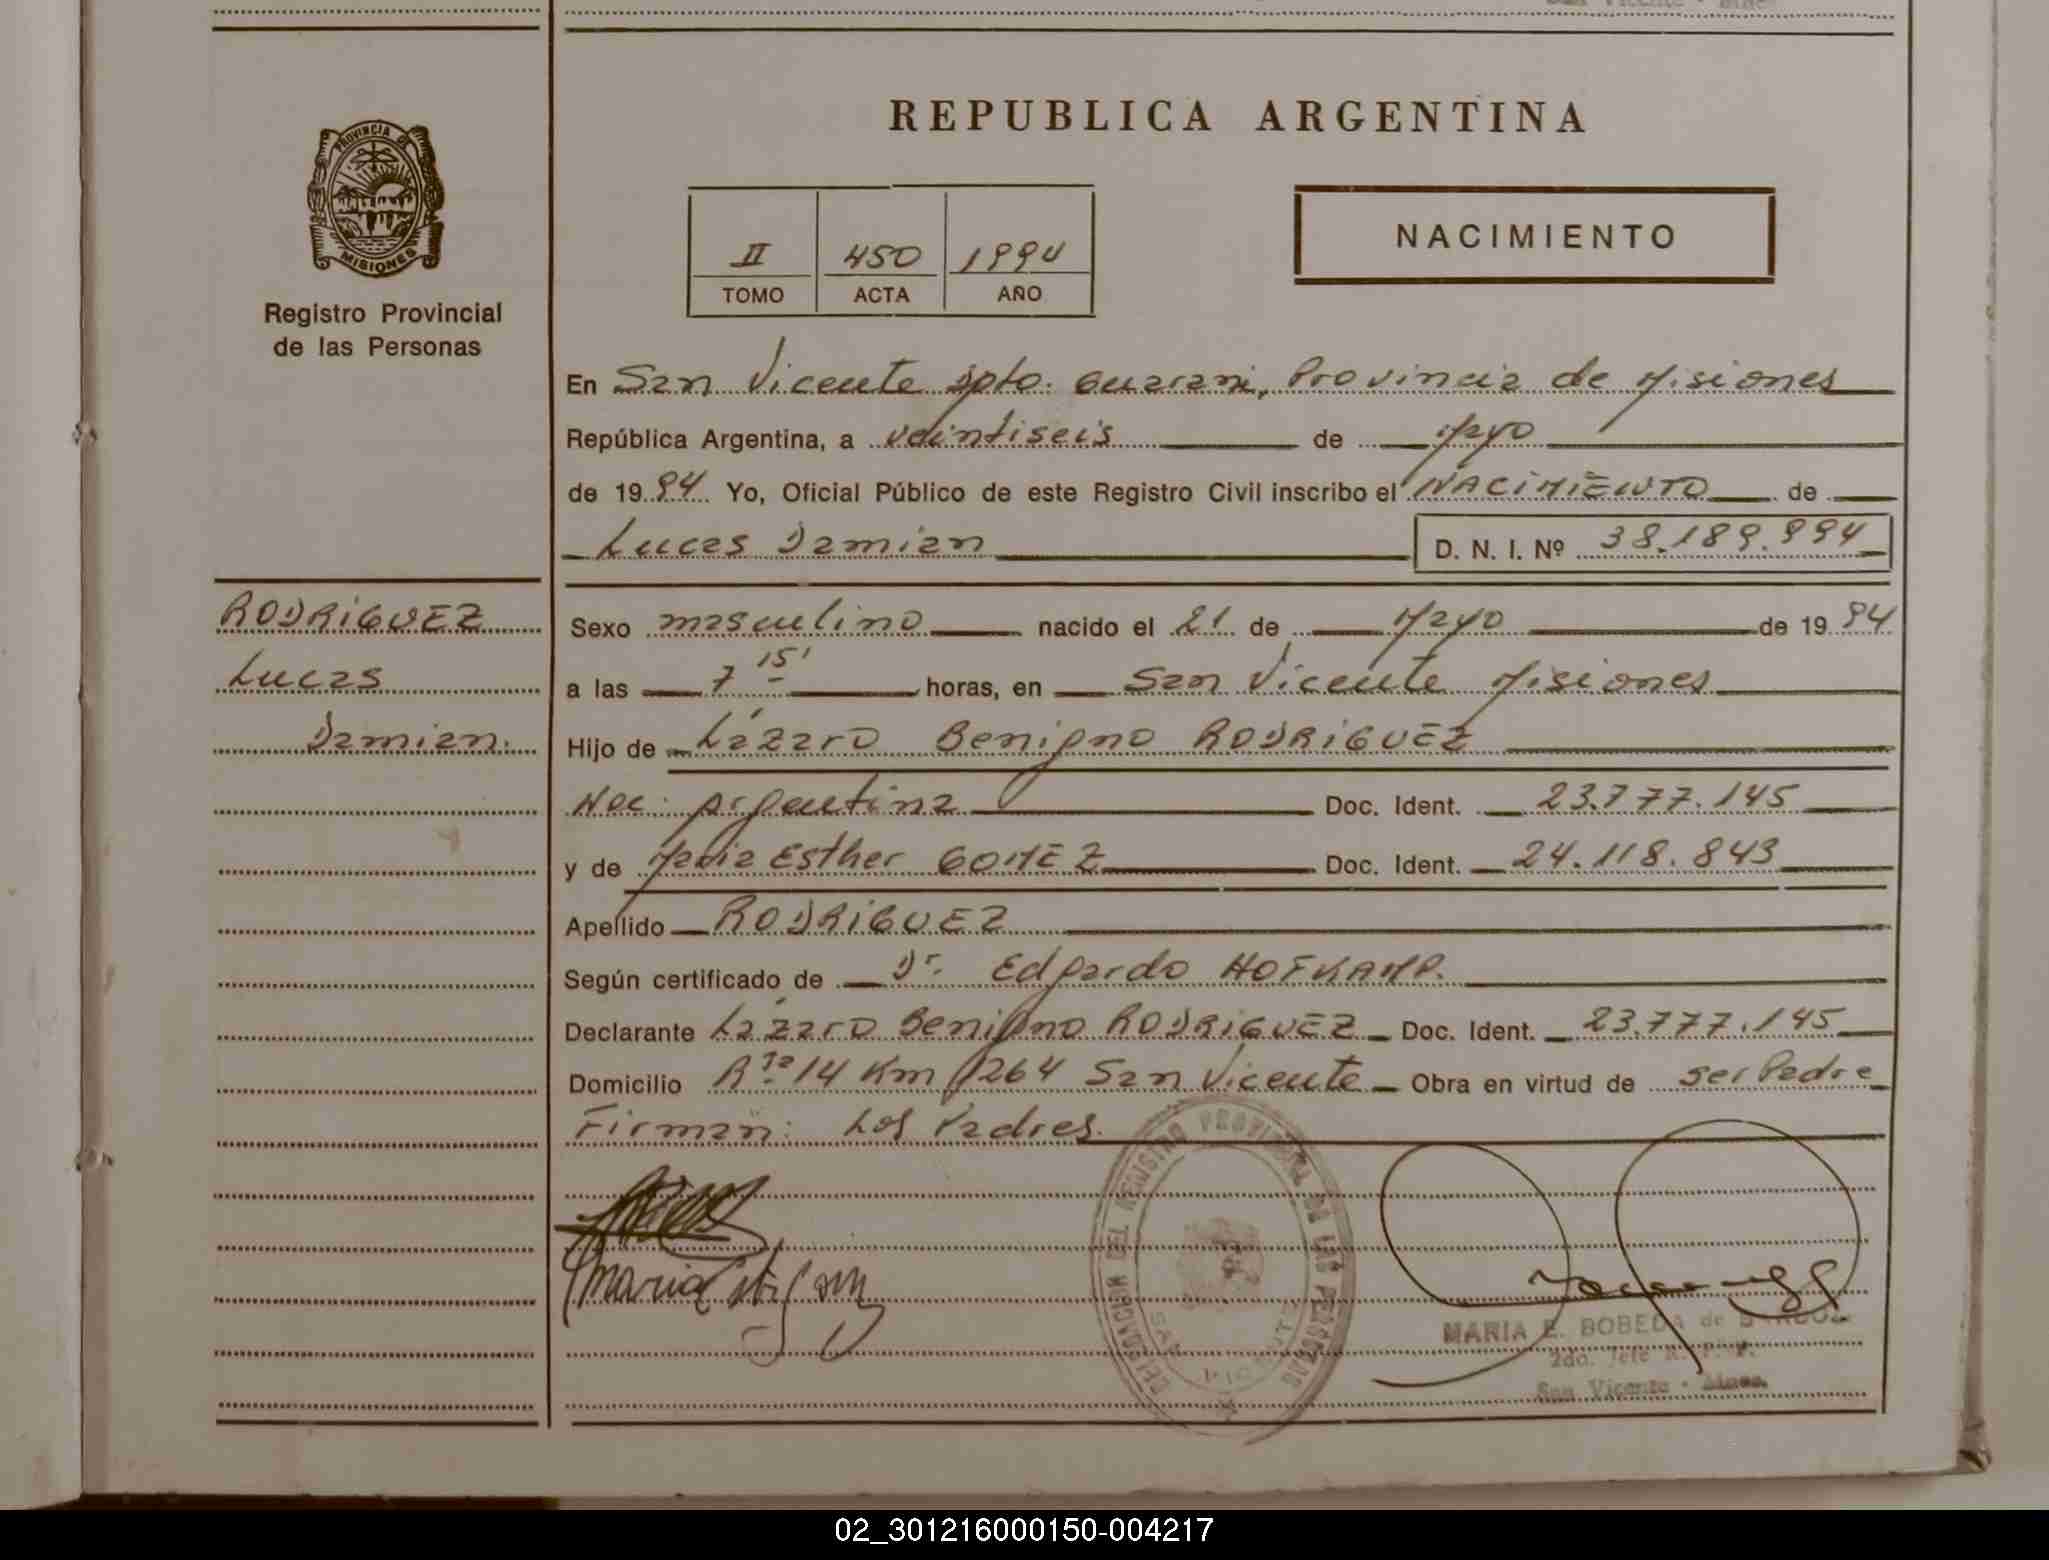 REPUBLICA ARGENTINA
PROVINCIA DE
MISIONES
Registro Provincial
de las Personas
II 450 1994
TOMO ACTA AÑO
NACIMIENTO
En San Vicente Dpto. Guarani, Provincia de Misiones
República Argentina, a veintiseis de Mayo
de 1994 Yo, Oficial Público de este Registro Civil inscribo el NACIMIENTO de
Lucas Damian D. N. I. Nº 38.189.994
RODRIGUEZ
Lucas
Damian.
Sexo masculino nacido el 21 de Mayo de 1994
a las 7 15' horas, en San Vicente Misiones
Hijo de Lázaro Benigno RODRIGUEZ
Nac. Argentina Doc. Ident. 23.777.145
y de Maria Esther GOMEZ Doc. Ident. 24.118.843
Apellido RODRIGUEZ
Según certificado de Dr. Edgardo HOFKAMP.
Declarante Lázaro Benigno RODRIGUEZ Doc. Ident. 23.777.145
Domicilio Rta 14 Km 1264 San Vicente Obra en virtud de ser Padre
Firman: Los Padres.
DELEGACION DEL REGISTRO PROVINCIAL DE LAS PERSONAS
SAN VICENTE
Maria
MARIA E. BOBEDA de
2do. Jefe R. P. P.
San Vicente - Mnes.
02_301216000150-004217